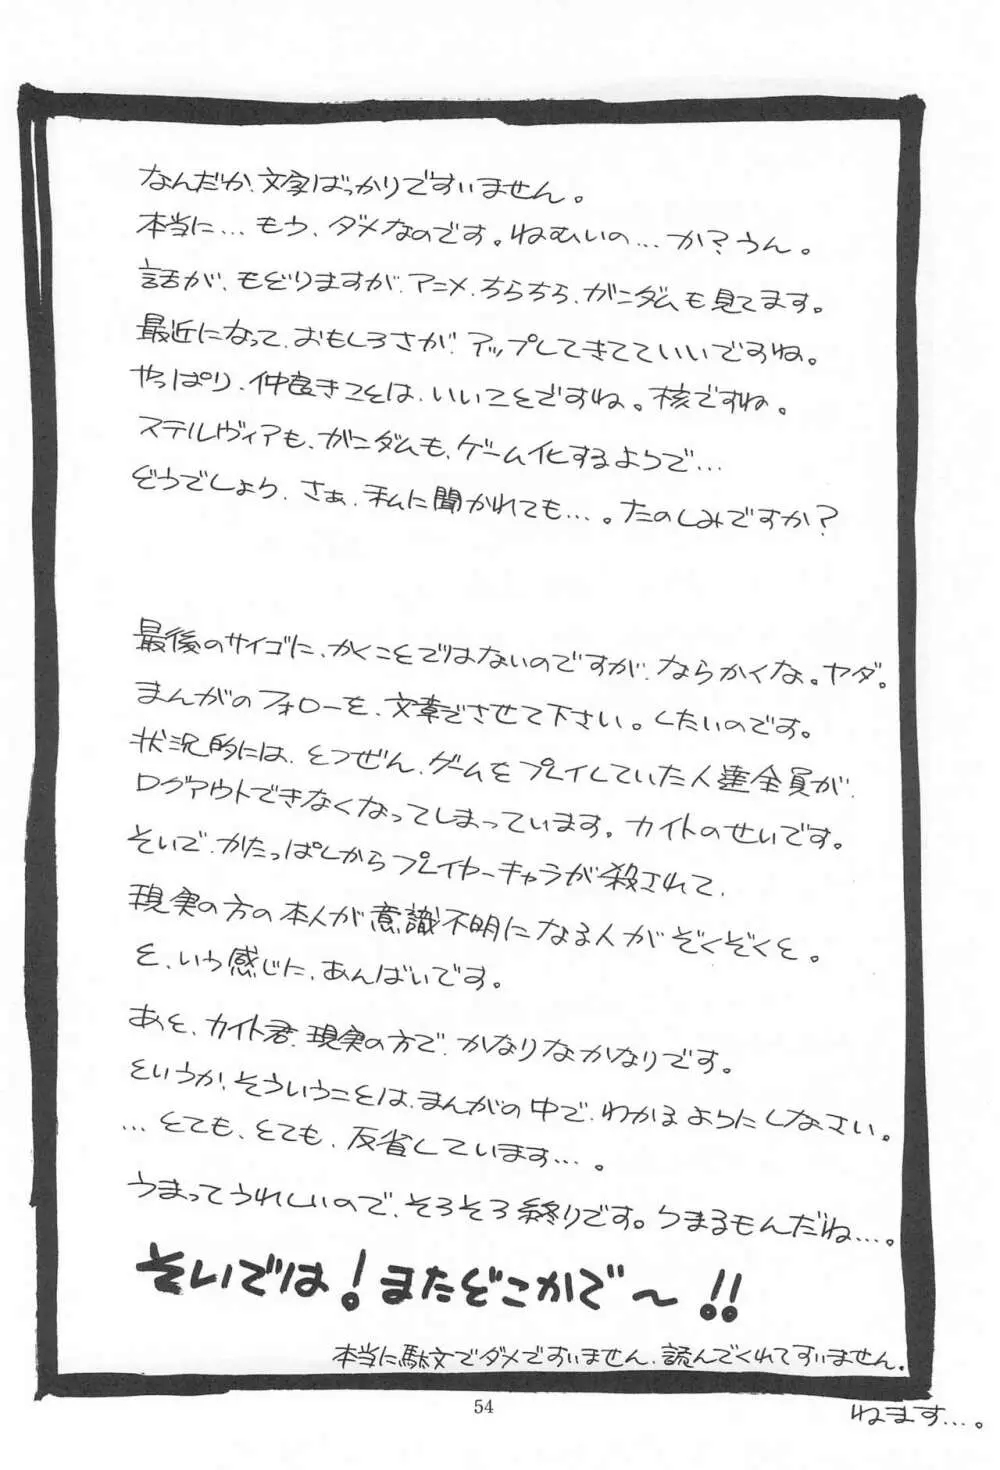 なんだか、文字ばっかりですいません。
本当に…もう、ダメなのです。ねむいの…か?うん。
話が、もどりますが、アニメ、ちらちら、ガンダムも見てます。
最近になって、おもしろさが、アップしてきてていいですね。
やっぱり、仲良きことは、いいことですね。核ですね。
ステルヴィアも、ガンダムも、ゲーム化するようで…
どうでしょう、さぁ、私に聞かれても…。たのしみですか?
最後のサイゴに、かくことではないのですが、ならかくな。ヤダ。
まんがのフォローを、文章でさせて下さい。したいのです。
状況的には、とつぜん、ゲームをプレイしていた人達全員が、
ログアウトできなくなってしまっています。カイトのせいです。
そいで、かたっぱしからプレイヤーキャラが殺されて、
現実の方の本人が意識不明になる人がぞくぞくと。
と、いう感じに、あんばいです。
あと、カイト君、現実の方で、かなりなかなりです。
というか、そういうことは、まんがの中で、わかるようにしなさい。
…とても、とても、反省しています…。
うまってうれしいので、そろそろ終りです。うまるもんだね…。
そいでは!またどこかで〜!!
本当に駄文でダメですいません、読んでくれてすいません。
54
ねます…。